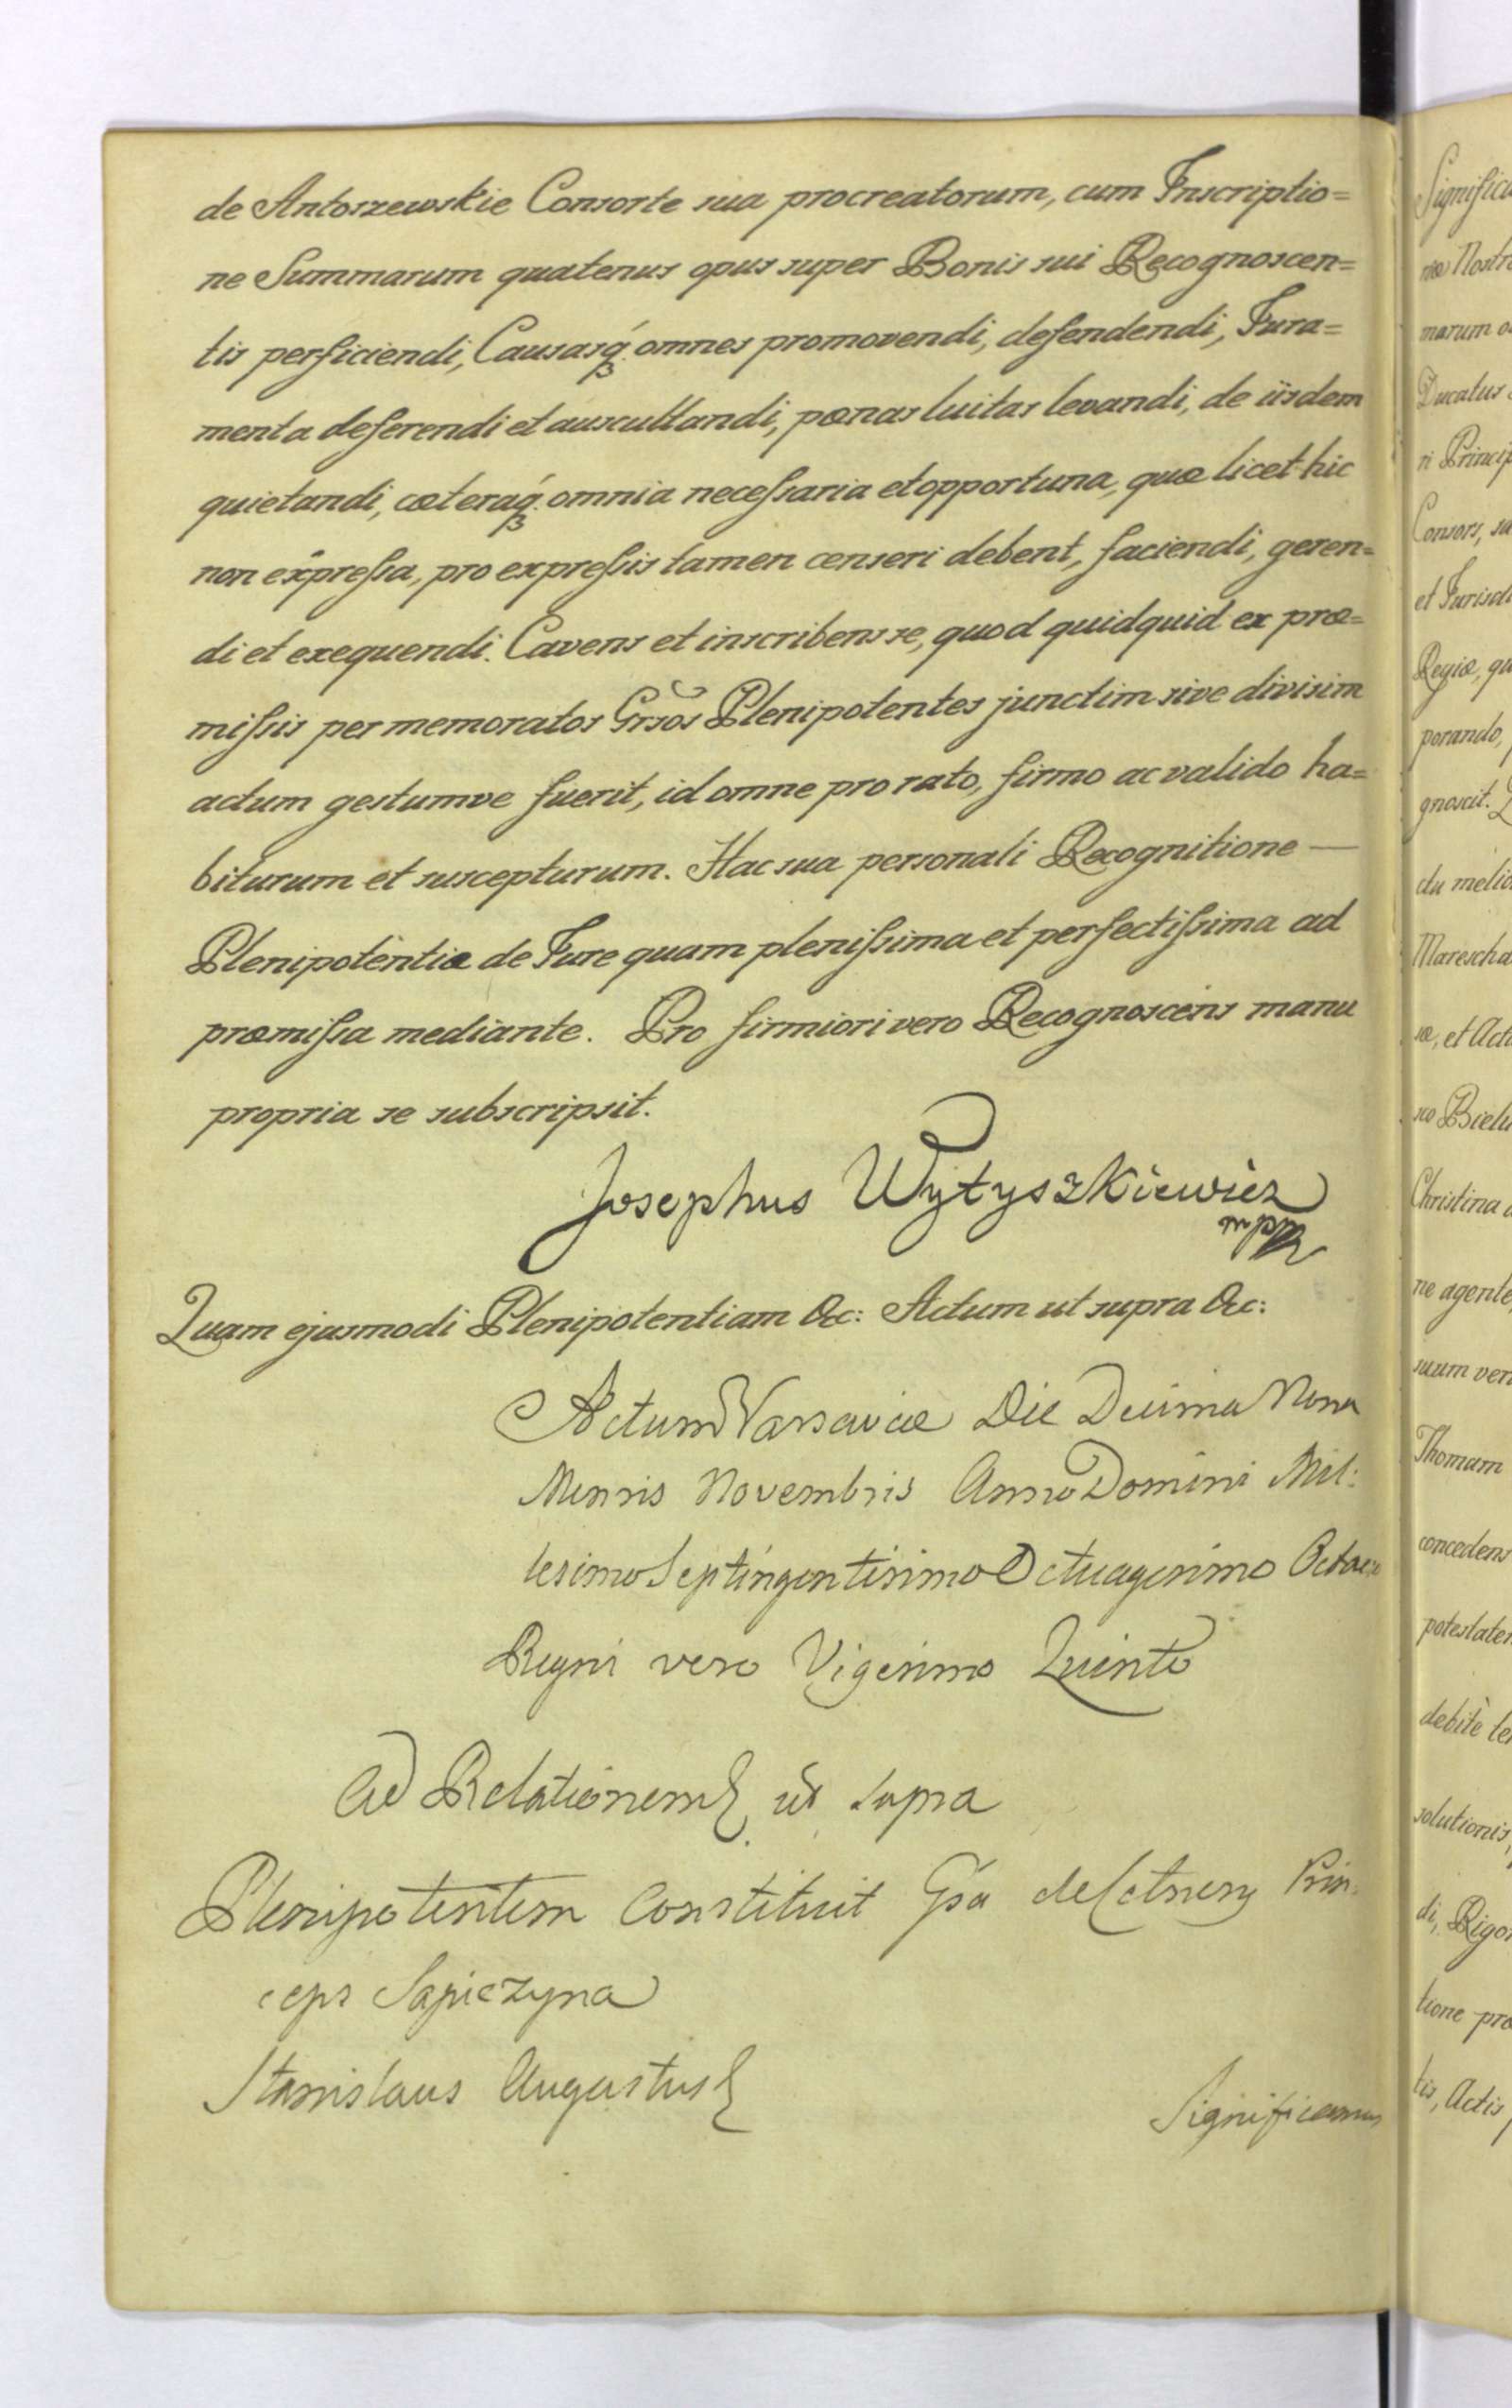 de Antoszewskie Consorte sua procreatorum, cum Inscriptio=
ne Summarum quatenus opus super Bonis sui Recognoscen=
tis perficiendi, Causasq́ꝫ omnes promovendi, defendendi, Jura=
menta deferendi et auscultandi, pœnas luitas levandi, de iisdem
quietandi, cæteraq́ꝫ omnia necessaria et opportuna, quæ licet hic
non expressa, pro expressis tamen censeri debent, faciendi, geren=
di et exequendi. Cavens et inscribens se, quod quidquid ex præ=
missis per memoratos Grsos Plenipotentes junctim sive divisim
actum gestumve fuerit, id omne pro rato, firmo ac valido ha=
biturum et suscepturum. Hac sua personali Recognitione —
Plenipotentiæ de Jure quam plenissima et perfectissima ad
præmissa mediante. Pro firmiori vero Recognoscens manu
propria se subscripsit.
Josephus Wytyszkiewicz
mpp
Quam ejusmodi Plenipotentiam &c: Actum ut supra &c:
Actum Varsaviæ Die Decima Nona
Mensis Novembris Anno Domini Mil:
lesimo Septingentesimo Octuagesimo Octavo
Regni vero Vigesimo Quinto
Ad Relationem ut supra
Plenipotentem Constituit Gsa de Cetnery Prin:
ceps Sapiezyna
Stanislaus Augustus
Significamus
Significa
riæ Nostr
marum o
Ducatus
ri Princip
Consors, sa
et Jurisdi
Regiæ, qu
porando,
gnoscit.
ctu melio
Marescha
sæ, et Acti
sco Bielu
Christina
ne agente
suum ver
Thomam
concedens
potestate
debitè le
solutionis,
di, Rigo
tione præ
tis, Actis